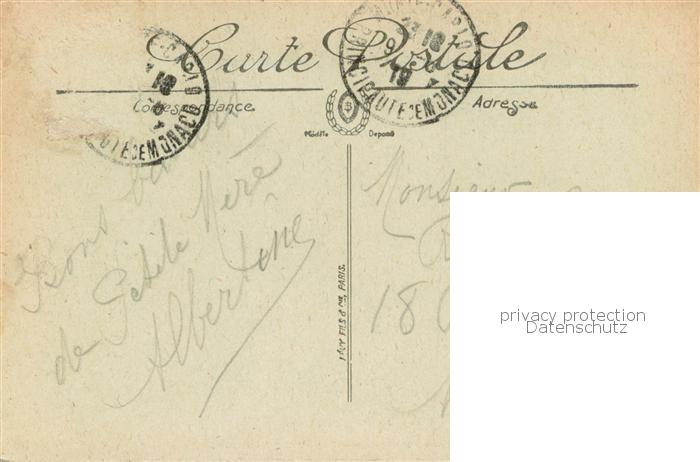 Carte Postale
Correspondance
Adresse
Modèle Déposé
MONTE-CARLO
PRINCIPAUTÉ DE MONACO
Bons baisers
de Petite Mère
Albertine
Monsieur
18
LÉVY FILS & Cie, PARIS.
privacy protection
Datenschutz